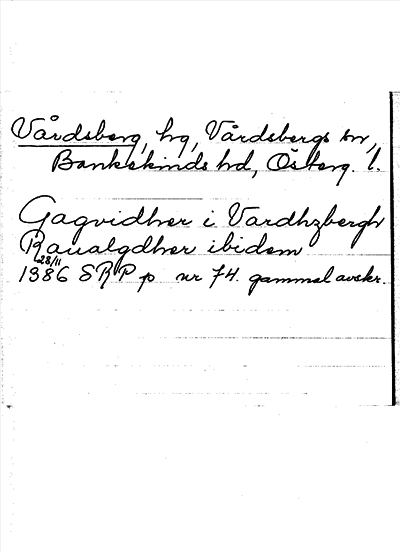 Vårdsberg, hg, Vårdsbergs sn,
Bankekinds hd, Österg. l.
Gagvidher i Vardhzbergh
Raualgdher ibidem
28/11
1386 SRP p nr 74. gammal avskr.